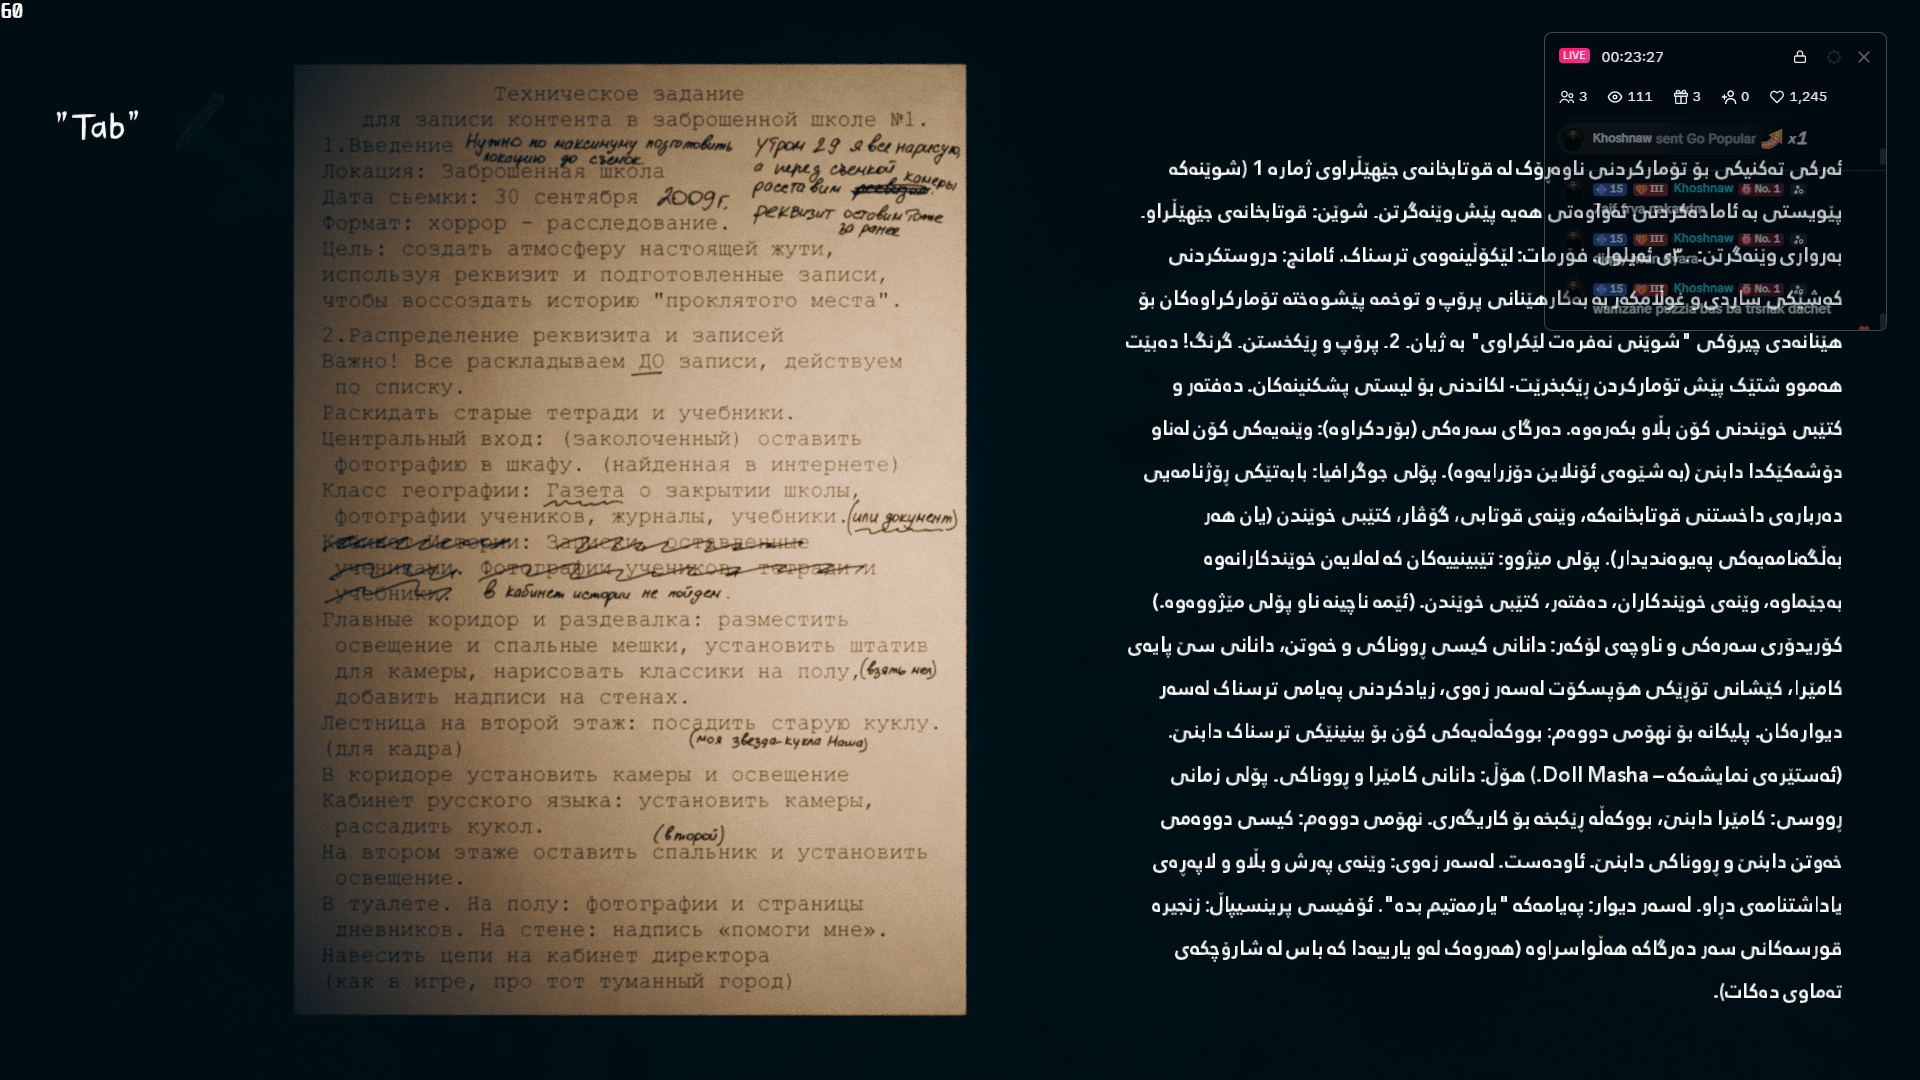 60
"Tab"
Техническое задание
для записи контента в заброшенной школе №1.
1.Введение Нужно по максимуму подготовить
локацию до съемок.
утром 29 я все нарисую,
а перед съемкой камеры
расставим
реквизит оставим тоже
за ранее
Локация: Заброшенная школа
Дата сьемки: 30 сентября 2009г.
Формат: хоррор - расследование.
Цель: создать атмосферу настоящей жути,
используя реквизит и подготовленные записи,
чтобы воссоздать историю "проклятого места".
2.Распределение реквизита и записей
Важно! Все раскладываем ДО записи, действуем
по списку.
Раскидать старые тетради и учебники.
Центральный вход: (заколоченный) оставить
фотографию в шкафу. (найденная в интернете)
Класс географии: Газета о закрытии школы,
фотографии учеников, журналы, учебники. (или документ)
Кабинет Истории: Записки, оставленные
учениками. Фотографии учеников, тетради и
учебники. в кабинет истории не пойдем.
Главные коридор и раздевалка: разместить
освещение и спальные мешки, установить штатив
для камеры, нарисовать классики на полу, (взять мел)
добавить надписи на стенах.
Лестница на второй этаж: посадить старую куклу.
(для кадра) (моя звезда-кукла Маша)
В коридоре установить камеры и освещение
Кабинет русского языка: установить камеры,
рассадить кукол.
(второй)
На втором этаже оставить спальник и установить
освещение.
В туалете. На полу: фотографии и страницы
дневников. На стене: надпись «помоги мне».
Навесить цепи на кабинет директора
(как в игре, про тот туманный город)
LIVE 00:23:27
3 111 3 0 1,245
Khoshnaw sent Go Popular x1
15 III Khoshnaw No. 1
15 III Khoshnaw No. 1
15 III Khoshnaw No. 1
wamzane pozzla bas ba trsnak dachet
ئەرکی تەکنیکی بۆ تۆمارکردنی ناوەڕۆک لە قوتابخانەی جێهێڵراوی ژمارە 1 (شوێنەکە
پێویستی بە ئامادەکردنی تەواوەتی هەیە پێش وێنەگرتن. شوێن: قوتابخانەی جێهێڵراو.
بەرواری وێنەگرتن: ٣٠ی ئەیلول. فۆرمات: لێکۆڵینەوەی ترسناک. ئامانج: دروستکردنی
کەشێکی ساردی و غوڵامکەر بە بەکارهێنانی پرۆپ و توخمە پێشوەختە تۆمارکراوەکان بۆ
هێنانەدی چیرۆکی "شوێنی نەفرەت لێکراوی" بە ژیان. 2. پرۆپ و ڕێکخستن. گرنگ! دەبێت
هەموو شتێک پێش تۆمارکردن ڕێکبخرێت- لکاندنی بۆ لیستی پشکنینەکان. دەفتەر و
کتێبی خوێندنی کۆن بڵاو بکەرەوە. دەرگای سەرەکی (بۆردکراوە): وێنەیەکی کۆن لەناو
دۆشەکێکدا دابنێ (بە شێوەی ئۆنلاین دۆزرایەوە). پۆلی جوگرافیا: بابەتێکی ڕۆژنامەیی
دەربارەی داخستنی قوتابخانەکە، وێنەی قوتابی، گۆڤار، کتێبی خوێندن (یان هەر
بەڵگەنامەیەکی پەیوەندیدار). پۆلی مێژوو: تێبینییەکان کە لەلایەن خوێندکارانەوە
بەجێماوە، وێنەی خوێندکاران، دەفتەر، کتێبی خوێندن. (ئێمە ناچینە ناو پۆلی مێژووەوە.)
کۆریدۆری سەرەکی و ناوچەی لۆکەر: دانانی کیسی ڕووناکی و خەوتن، دانانی سێ پایەی
کامێرا، کێشانی تۆڕێکی هۆپسکۆت لەسەر زەوی، زیادکردنی پەیامی ترسناک لەسەر
دیوارەکان. پلیکانە بۆ نهۆمی دووەم: بووکەڵەیەکی کۆن بۆ بینینێکی ترسناک دابنێ.
(ئەستێرەی نمایشەکە – Doll Masha.) هۆڵ: دانانی کامێرا و ڕووناکی. پۆلی زمانی
ڕووسی: کامێرا دابنێ، بووکەڵە ڕێکبخە بۆ کاریگەری. نهۆمی دووەم: کیسی دووەمی
خەوتن دابنێ و ڕووناکی دابنێ. ئاودەست. لەسەر زەوی: وێنەی پەرش و بڵاو و لاپەڕەی
یاداشتنامەی دڕاو. لەسەر دیوار: پەیامەکە "یارمەتیم بدە". ئۆفیسی پرینسیپاڵ: زنجیرە
قورسەکانی سەر دەرگاکە هەڵواسراوە (هەروەک لەو یارییەدا کە باس لە شارۆچکەی
تەماوی دەکات).